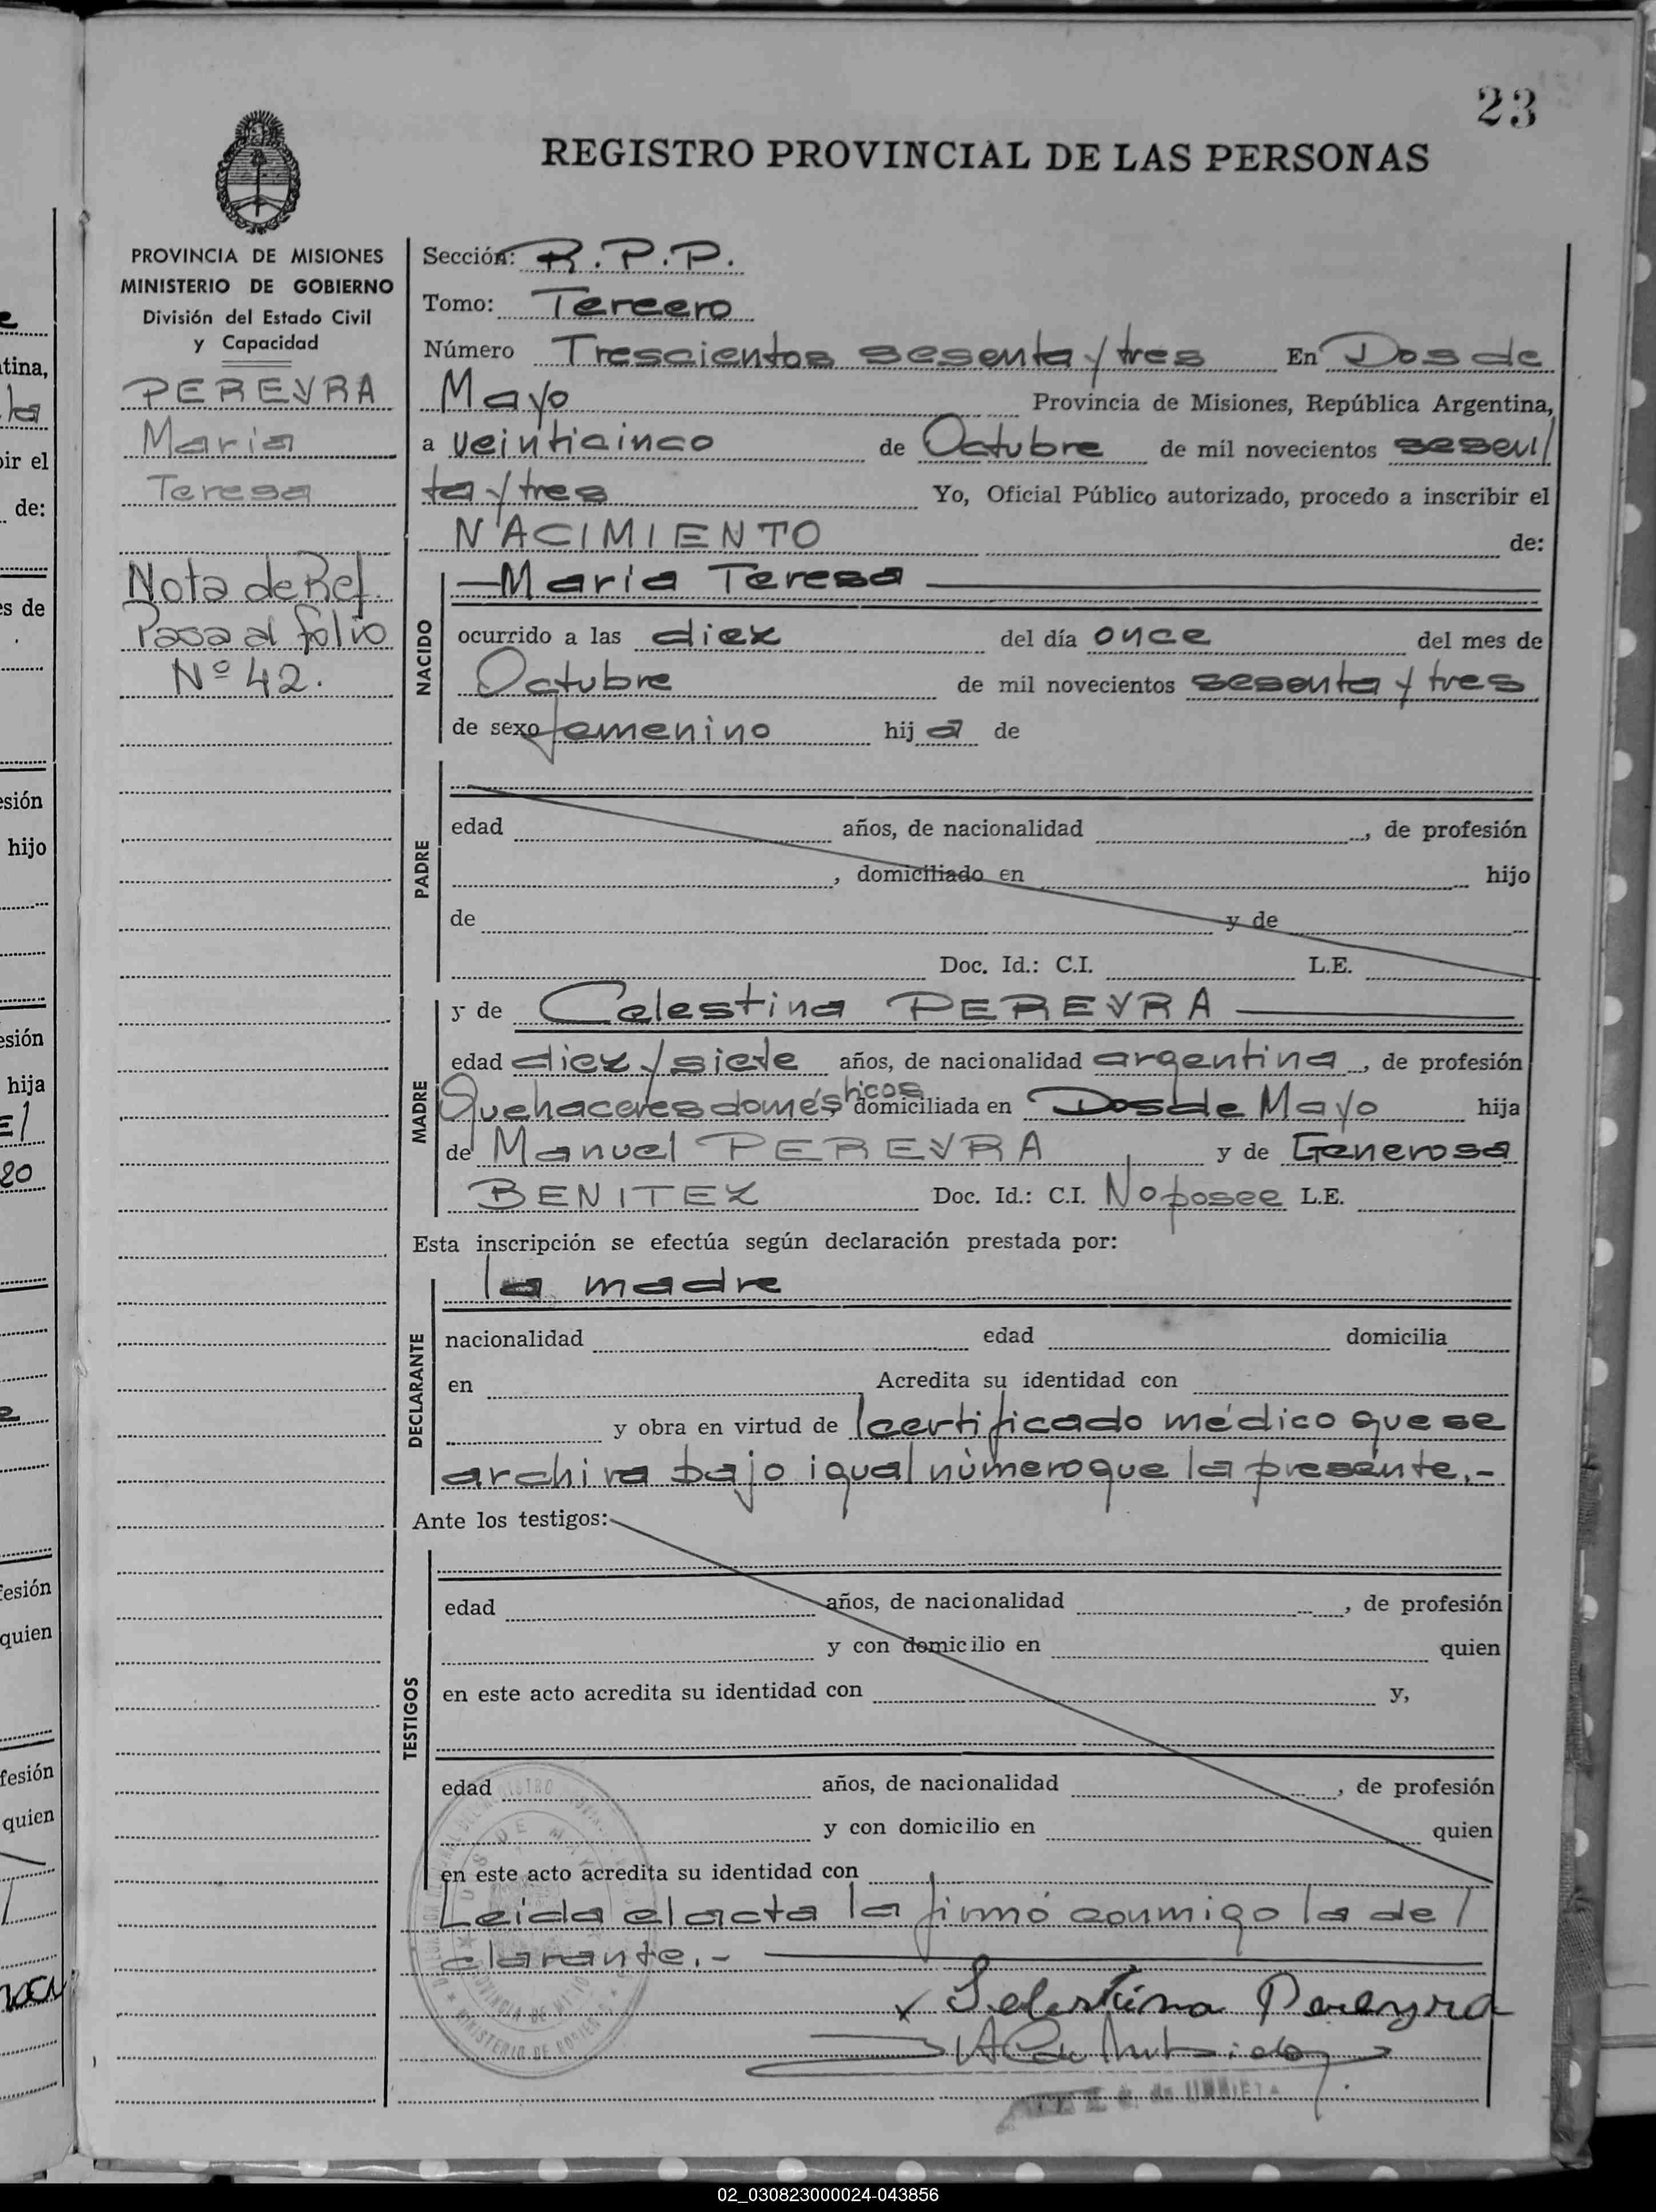 23
REGISTRO PROVINCIAL DE LAS PERSONAS
PROVINCIA DE MISIONES
MINISTERIO DE GOBIERNO
División del Estado Civil
y Capacidad
PEREYRA
Maria
Teresa
Nota de Ref.
Pasa al folio
Nº 42.
Sección: R.P.P.
Tomo: Tercero
Número Trescientos sesenta y tres En Dos de
Mayo Provincia de Misiones, República Argentina,
a veinticinco de Octubre de mil novecientos sesen/
ta y tres Yo, Oficial Público autorizado, procedo a inscribir el
NACIMIENTO de:
NACIDO
—Maria Teresa—
ocurrido a las diez del día once del mes de
Octubre de mil novecientos sesenta y tres
de sexo femenino hija de
PADRE
edad años, de nacionalidad , de profesión
, domiciliado en hijo
de y de
Doc. Id.: C.I. L.E.
MADRE
y de Celestina PEREYRA—
edad diez y siete años, de nacionalidad argentina, de profesión
Quehaceres domésticos domiciliada en Dos de Mayo hija
de Manuel PEREYRA y de Generosa
BENITEZ Doc. Id.: C.I. No posee L.E.
Esta inscripción se efectúa según declaración prestada por:
DECLARANTE
la madre
nacionalidad edad domicilia
en Acredita su identidad con
y obra en virtud de /certificado médico que se
archiva bajo igual número que la presente.-
Ante los testigos:
TESTIGOS
edad años, de nacionalidad , de profesión
y con domicilio en quien
en este acto acredita su identidad con y,
edad años, de nacionalidad , de profesión
y con domicilio en quien
en este acto acredita su identidad con
Leída el acta la firmó conmigo la de/
clarante.-
x Selestina Pereyra
de URRIETA
DOS DE MAYO
PROVINCIA DE MISIONES
MINISTERIO DE GOBIERNO
tina,
la
bir el
de:
es de
esión
hijo
esión
hija
20
fesión
quien
fesión
quien
02_030823000024-043856